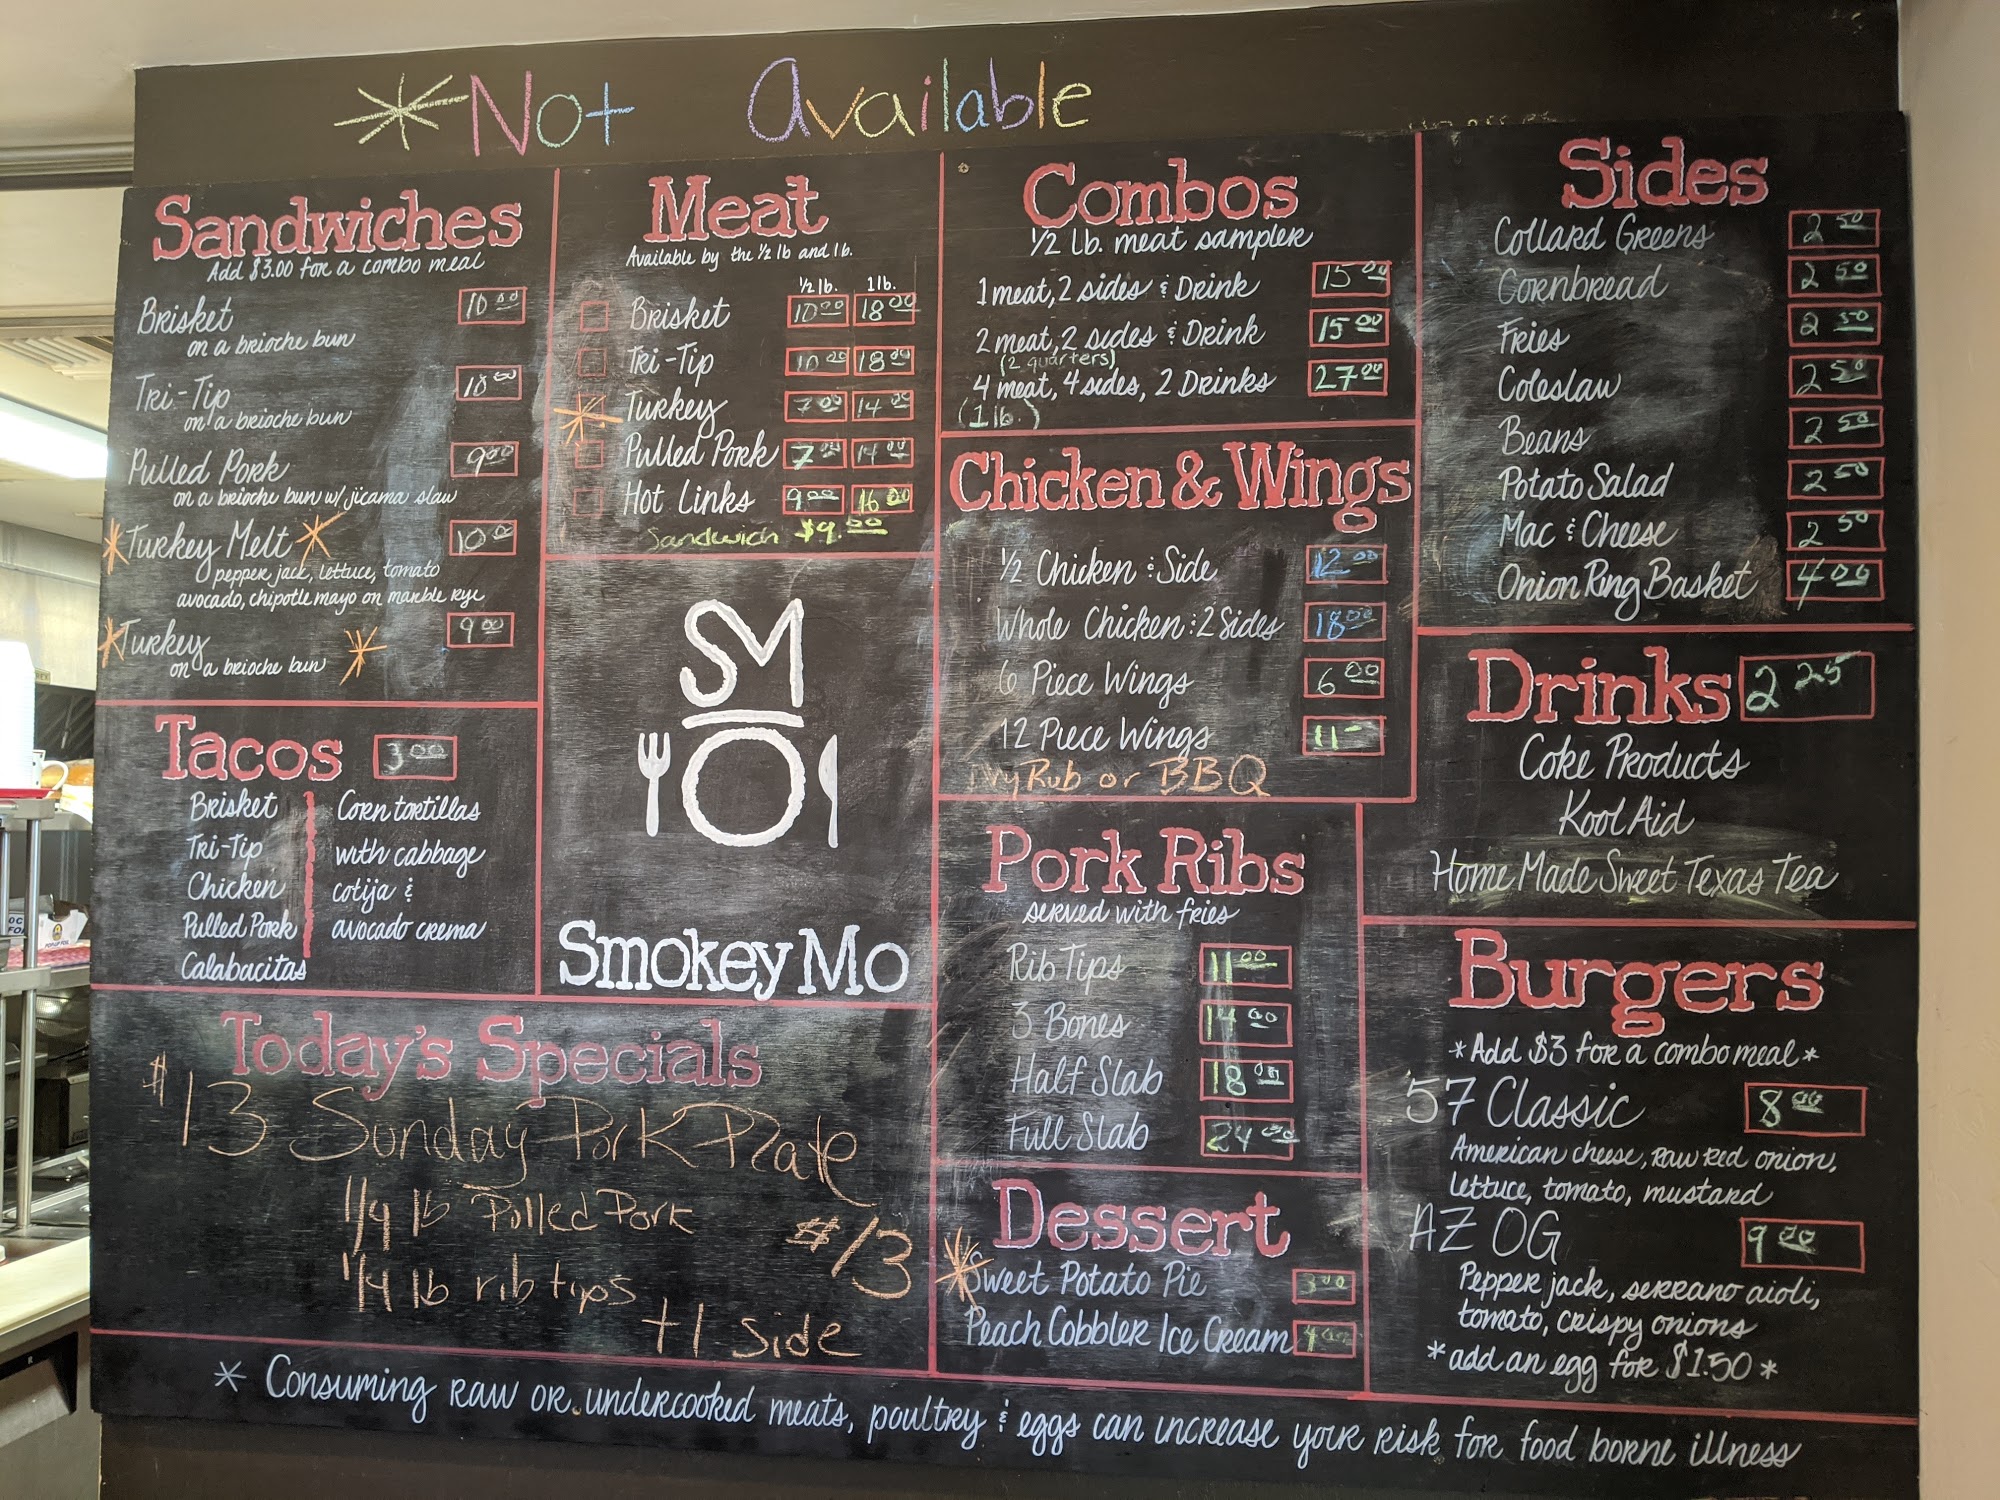 *Not Available
Sandwiches
Add $3.00 for a combo meal
Brisket 10.00
on a brioche bun
Tri-Tip 10.00
on a brioche bun
Pulled Pork 9.00
on a brioche bun w/ jicama slaw
*Turkey Melt* 10.00
pepper jack, lettuce, tomato
avocado, chipotle mayo on marble rye
*Turkey 9.00
on a brioche bun *
Tacos 3.00
Brisket
Tri-Tip
Chicken
Pulled Pork
Calabacitas
Corn tortillas
with cabbage
cotija &
avocado crema
Meat
Available by the 1/2 lb and lb.
1/2 lb. 1 lb.
Brisket 10.00 18.00
Tri-Tip 10.00 18.00
*Turkey 7.00 14.00
Pulled Pork 7.00 14.00
Hot Links 9.00 16.00
Sandwich $9.00
SMO
Smokey Mo
Today's Specials
$13 Sunday Pork Plate
1/4 lb Pulled Pork
$13
1/4 lb rib tips
+1 side
Combos
1/2 Lb. meat sampler
1 meat, 2 sides & Drink 15.00
2 meat, 2 sides & Drink 15.00
(2 quarters)
4 meat, 4 sides, 2 Drinks 27.00
(1 lb.)
Chicken & Wings
1/2 Chicken & Side 12.00
Whole Chicken & 2 Sides 18.00
6 Piece Wings 6.00
12 Piece Wings 11-
Dry Rub or BBQ
Pork Ribs
served with fries
Rib Tips 11.00
3 Bones 14.00
Half Slab 18.00
Full Slab 24.00
Dessert
*Sweet Potato Pie 3.00
Peach Cobbler Ice Cream 4.00
Sides
Collard Greens 2.50
Cornbread 2.50
Fries 2.50
Coleslaw 2.50
Beans 2.50
Potato Salad 2.50
Mac & Cheese 2.50
Onion Ring Basket 4.00
Drinks 2.25
Coke Products
Kool Aid
Home Made Sweet Texas Tea
Burgers
*Add $3 for a combo meal*
57 Classic 8.00
American cheese, raw red onion,
lettuce, tomato, mustard
AZ OG 9.00
Pepper jack, serrano aioli,
tomato, crispy onions
*add an egg for $1.50*
* Consuming raw or undercooked meats, poultry & eggs can increase your risk for food borne illness